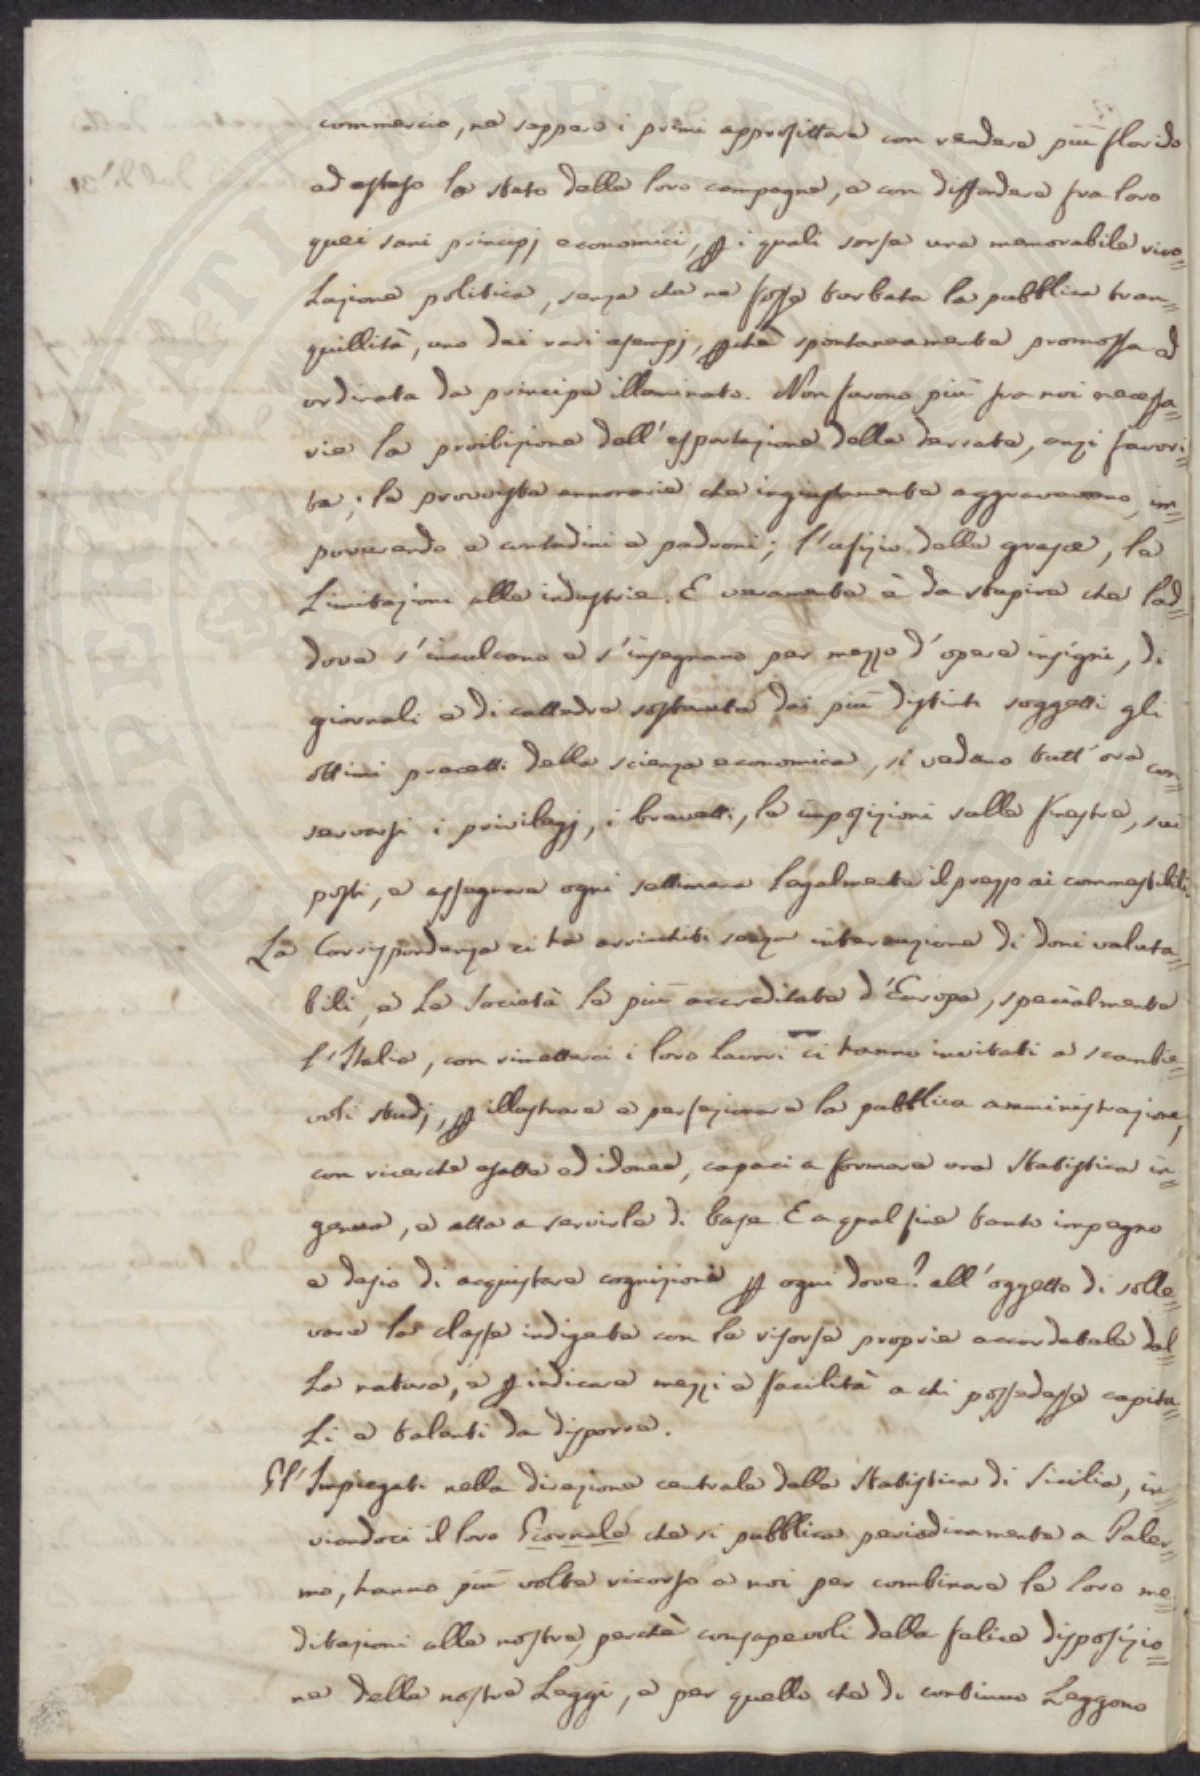 commercio, ne seppero i primi approfittare con rendere più florido
ed esteso lo stato delle loro campagne, e con diffondere fra loro
quei sani principj economici, p i quali sorse una memorabile rivo=
luzione politica, senza che ne fosse turbata la pubblica tran=
quillità, uno dei rari esempj, pchè spontaneamente promossa ed
ordinata da principe illuminato. Non furono più fra noi necessa=
rie la proibizione dell'esportazione delle derrate, anzi favori=
ta; le provviste annonarie che ingiustamente aggravavano, im=
poverendo e contadini e padroni; l'ufizio della grascia, le
limitazioni alle industrie. E veramente è da stupire che lad=
dove s'inculcano e s'insegnano per mezzo d'opere insigni, di
giornali e di cattedre sostenute dai più distinti soggetti gli
ottimi precetti della scienza economica, si vedano tutt'ora con=
servarsi i privilegj, i brevetti, le imposizioni sulle finestre, sui
posti, e assegnare ogni settimana legalmente il prezzo ai commestibili.
La Corrispondenza ci ha arricchiti senza interruzione di doni valuta=
bili, e le Società le più accreditate d'Europa, specialmente
l'Italia, con rimetterci i loro lavori ci hanno invitati a scambie=
voli studj, p illustrare e perfezionare la pubblica amministrazione,
con ricerche esatte ed idonee, capaci a formare una Statistica in=
genua, e atta a servirle di base. E a qual fine tanto impegno
e desio di acquistare cognizioni p ogni dove? all'oggetto di solle=
vare la classe indigente con le risorse proprie accordatele dal=
la natura, e p indicare mezzi e facilità a chi possedesse capita=
li e talenti da disporre.
Gl'Impiegati nella direzione centrale della Statistica di Sicilia, in=
viandoci il loro Giornale che si pubblica periodicamente a Paler=
mo, hanno più volte ricorso a noi per combinare le loro me=
ditazioni alle nostre, perchè consapevoli della felice disposizio=
ne delle nostre Leggi, e per quello che di continuo leggono